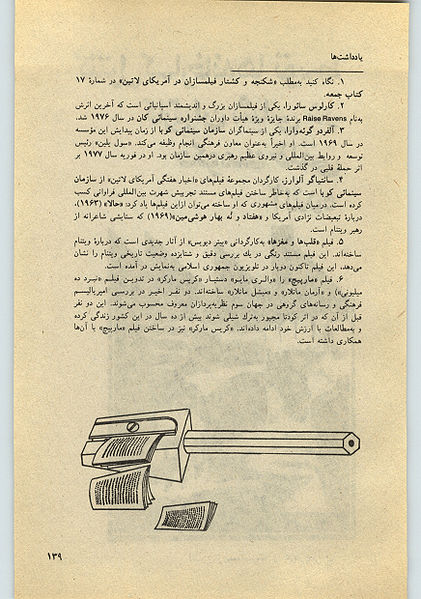 یادداشت‌ها
۱. نگاه کنید به‌مطلب «شکنجه و کشتار فیلمسازان در آمریکای لاتین» در شمارهٔ ۱۷
کتاب جمعه.
۲. کارلوس سائورا، یکی از فیلمسازان بزرگ و اندیشمند اسپانیائی است که آخرین اثرش
به‌نام Raise Ravens برندهٔ جایزهٔ ویژهٔ هیأت داوران جشنوارهٔ سینمائی کان در سال ۱۹۷۶ شد.
۳. آلفردو گوئه‌وارا، یکی از سینماگران سازمان سینمائی کوبا از زمان پیدایش این مؤسسه
در سال ۱۹۶۹ است. او اخیراً به‌عنوان معاون فرهنگی انجام وظیفه می‌کند. «سول یلین» رئیس
توسعه و روابط بین‌المللی و نیروی عظیم رهبری درهمین سازمان بود. او در فوریه سال ۱۹۷۷ بر
اثر حملهٔ قلبی در گذشت.
۴. سانتیاگو آلوارز، کارگردان مجموعهٔ فیلم‌های «اخبار هفتگی آمریکای لاتین» از سازمان
سینمائی کوبا است که به‌خاطر ساختن فیلم‌های مستند تجربیش شهرت بین‌المللی فراوانی کسب
کرده است. در میان فیلم‌های مشهوری که او ساخته می‌توان ازاین فیلم‌ها یاد کرد: «حالا» (۱۹۶۳)،
دربارهٔ تبعیضات نژادی آمریکا و «هفتاد و نُه بهار هوشی‌مین» (۱۹۶۹) که ستایشی شاعرانه از
رهبر ویتنام است.
۵. فیلم «قلب‌ها و مغزها» به‌کارگردانی «پیتر دیویس» از آثار جدیدی است که دربارهٔ ویتنام
ساخته‌اند. این فیلم مستند رنگی در یک بررسی دقیق و شتابزده وضعیت تاریخی ویتنام را نشان
می‌دهد، این فیلم تاکنون دوبار در تلویزیون جمهوری اسلامی به‌نمایش در آمده است.
۶. فیلم «مارپیچ» را «والری مایو» دستیار «کریس مارکر» در تدوین فیلم «نبرد ده
میلیونی» و «آرمان ماتلار» و «میشل ماتلار» ساخته‌اند. دو نفر اخیر در بررسی امپریالیسم
فرهنگی و رسانه‌های گروهی در جهان سوم نظریه‌پردازان معروف محسوب می‌شوند. این دو نفر
قبل از آن که در اثر کودتا مجبور به‌ترک شیلی شوند بیش از ده سال در این کشور زندگی کرده
و به‌مطالعات با ارزش خود ادامه داده‌اند. «کریس مارکر» نیز در ساختن فیلم «مارپیچ» با آن‌ها
همکاری داشته است.
۱۳۹